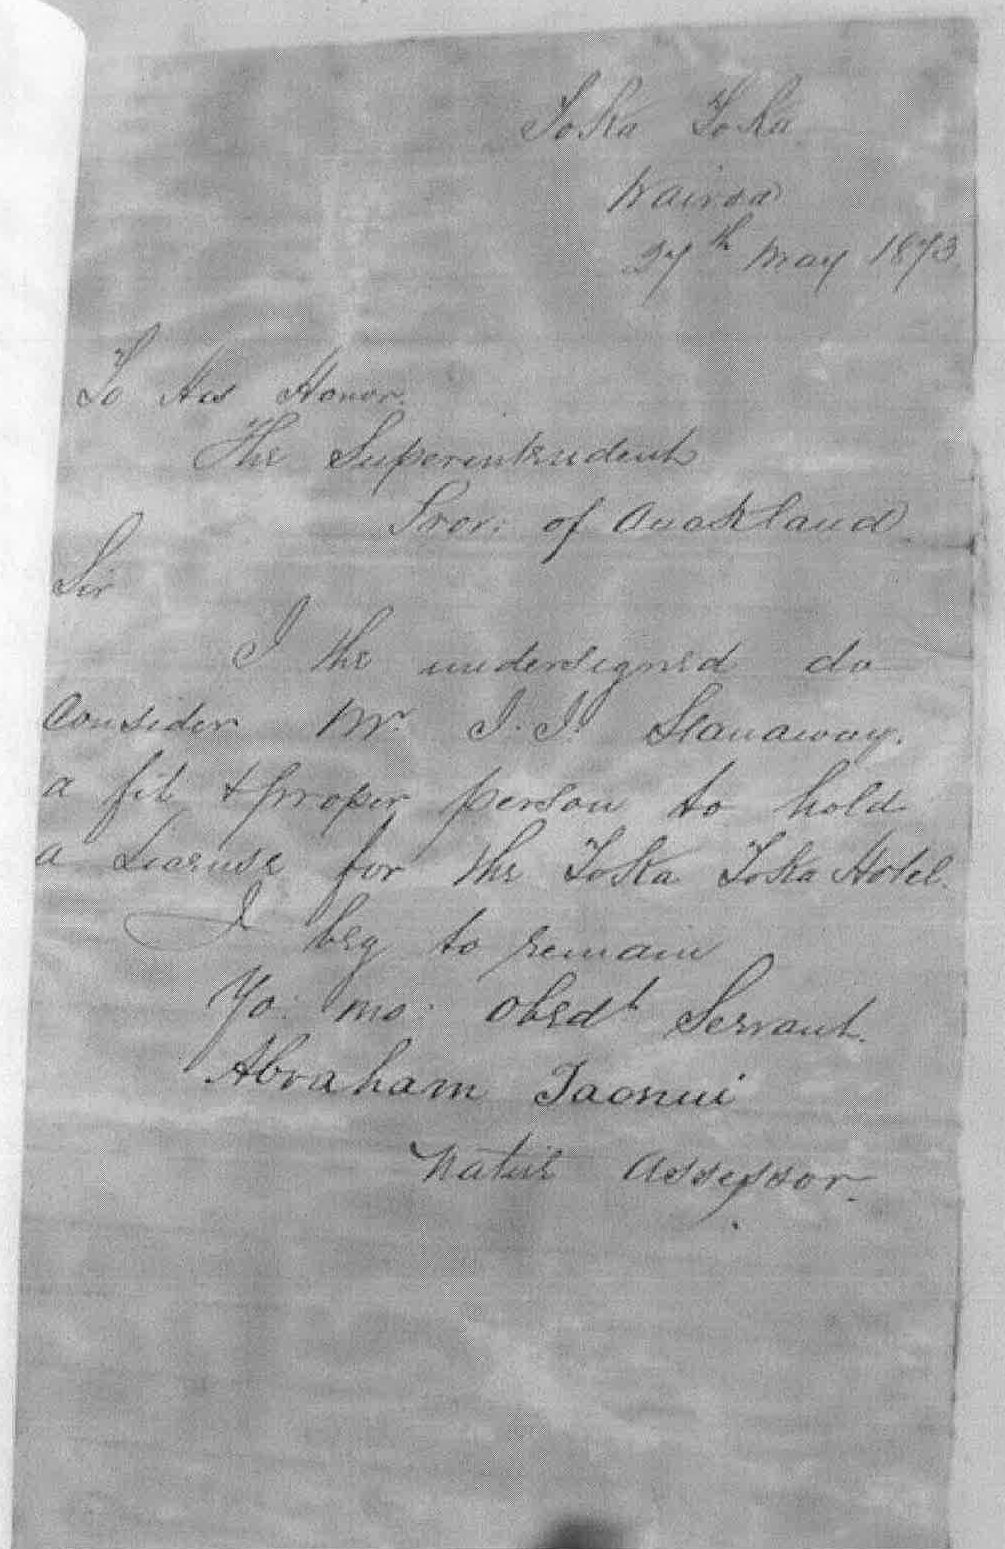 Toka Toka
Wairoa
27th May 1873
To His Honor.
The Superintendent
Prov: of Auckland.
Sir
I the undersigned do
Consider Mr. J. J. Stanaway.
a fit & proper person to hold
a License for the Toka Toka Hotel.
I beg to remain
Yo. mo. Obedt Servant.
Abraham Taonui
Native Assessor.